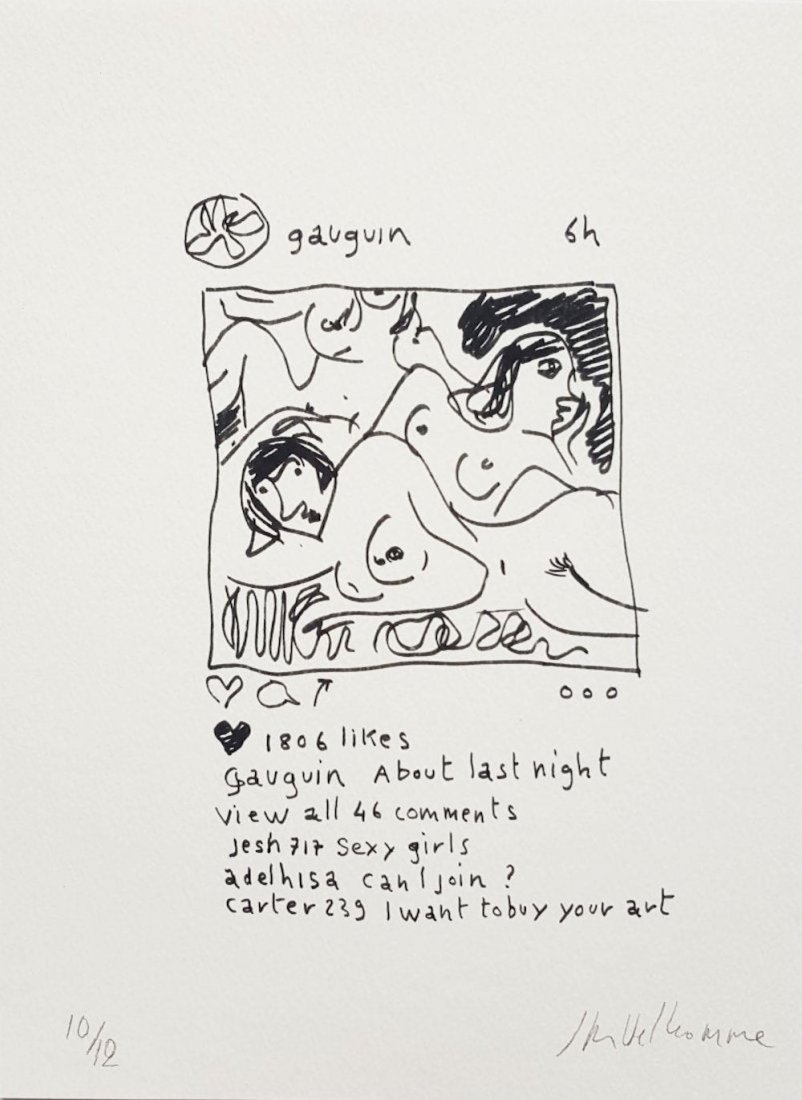 gauguin 6h
1806 likes
Gauguin About last night
View all 46 comments
Jesh717 Sexy girls
adelhisa can I join ?
carter239 I want to buy your art
10/12